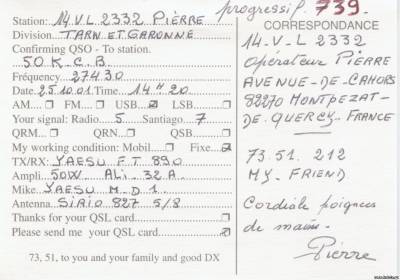 progressif. 739.
Station: 14.V.L 2332 PIÈRRE
Division TARN ET GARONNE
Confirming QSO - To station.
50 K.C.B.
Fréquency 27430
Date 25.10.01 Time 14.H 20
AM.... FM.... USB.. LSB..
Your signal: Radio 5 Santiago 7
QRM... QRN... QSB...
My working condition: Mobil Fixe
TX/RX: YAESU F.T 890
Ampli 50W. Ali. 32 A.
Mike YAESU M.D 1.
Antenna SiRiO 827 5/8
Thanks for your QSL card
Please send me your QSL card
73, 51, to you and your family and good DX
CORRESPONDANCE
14-V-L 2332
Opérateur PIERRE
AVENUE-DE-CAHORS
82270 MONTPEZAT-
DE-QUERCY-FRANCE
73.51. 212
MY-FRIEND
Cordiale poignées
de mains-
Pierre